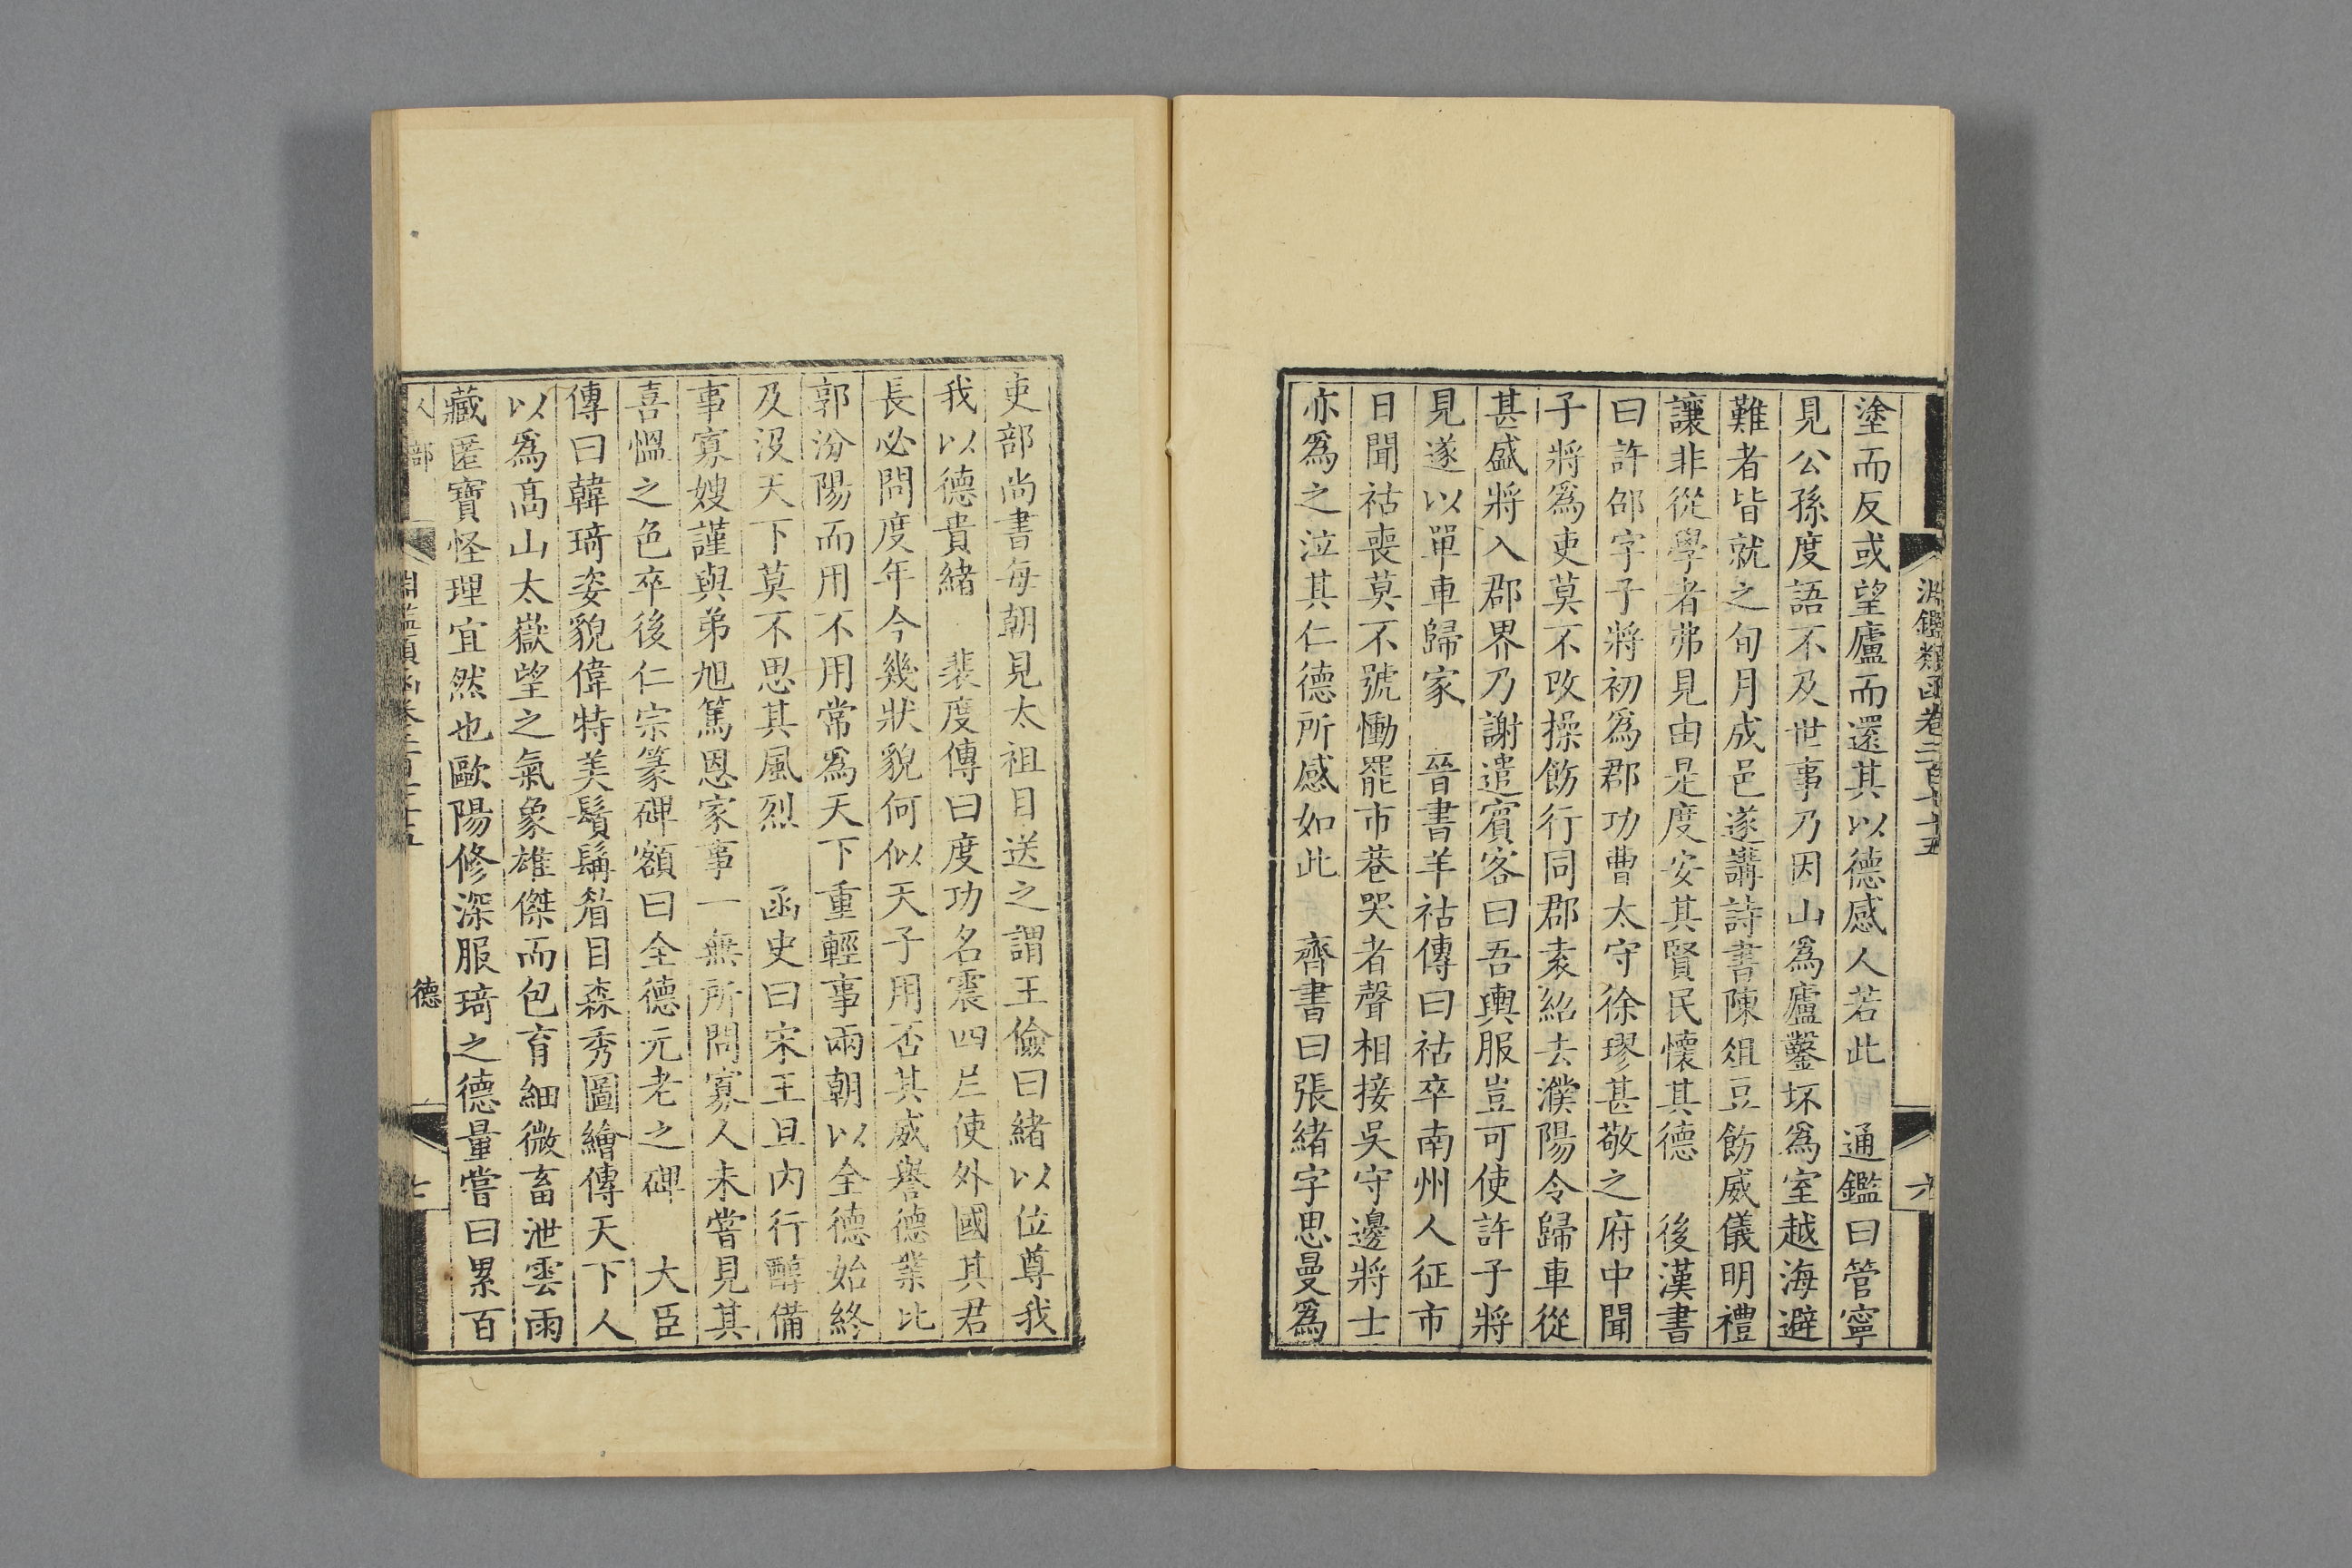 淵鑑類函卷二百七十五
六
塗而反或望廬而還其以德感人若此　通鑑曰管寧
見公孫度語不及世事乃因山爲廬鑿坏爲室越海避
難者皆就之旬月成邑遂講詩書陳俎豆飭威儀明禮
讓非從學者弗見由是度安其賢民懷其德　後漢書
曰許邵字子將初爲郡功曹太守徐璆甚敬之府中聞
子將爲吏莫不改操飭行同郡袁紹去濮陽令歸車從
甚盛將入郡界乃謝遣賓客曰吾輿服豈可使許子將
見遂以單車歸家　晉書羊祜傳曰祜卒南州人征市
日聞祜喪莫不號慟罷市巷哭者聲相接吳守邊將士
亦爲之泣其仁德所感如此　齊書曰張緒字思曼爲
吏部尚書每朝見太祖目送之謂王儉曰緒以位尊我
我以德貴緒　裴度傳曰度功名震四夷使外國其君
長必問度年今幾狀貌何似天子用否其威譽德業比
郭汾陽而用不用常爲天下重輕事兩朝以全德始終
及沒天下莫不思其風烈　函史曰宋王旦內行醇備
事寡嫂謹與弟旭篤恩家事一無所問寡人未嘗見其
喜慍之色卒後仁宗篆碑額曰全德元老之碑　大臣
傳曰韓琦姿貌偉特美鬚髯眉目森秀圖繪傳天下人
以爲高山太嶽望之氣象雄傑而包育細微畜泄雲雨
藏匿寶怪理宜然也歐陽修深服琦之德量嘗曰累百
人部
淵鑑類函卷二百七十五
德
七